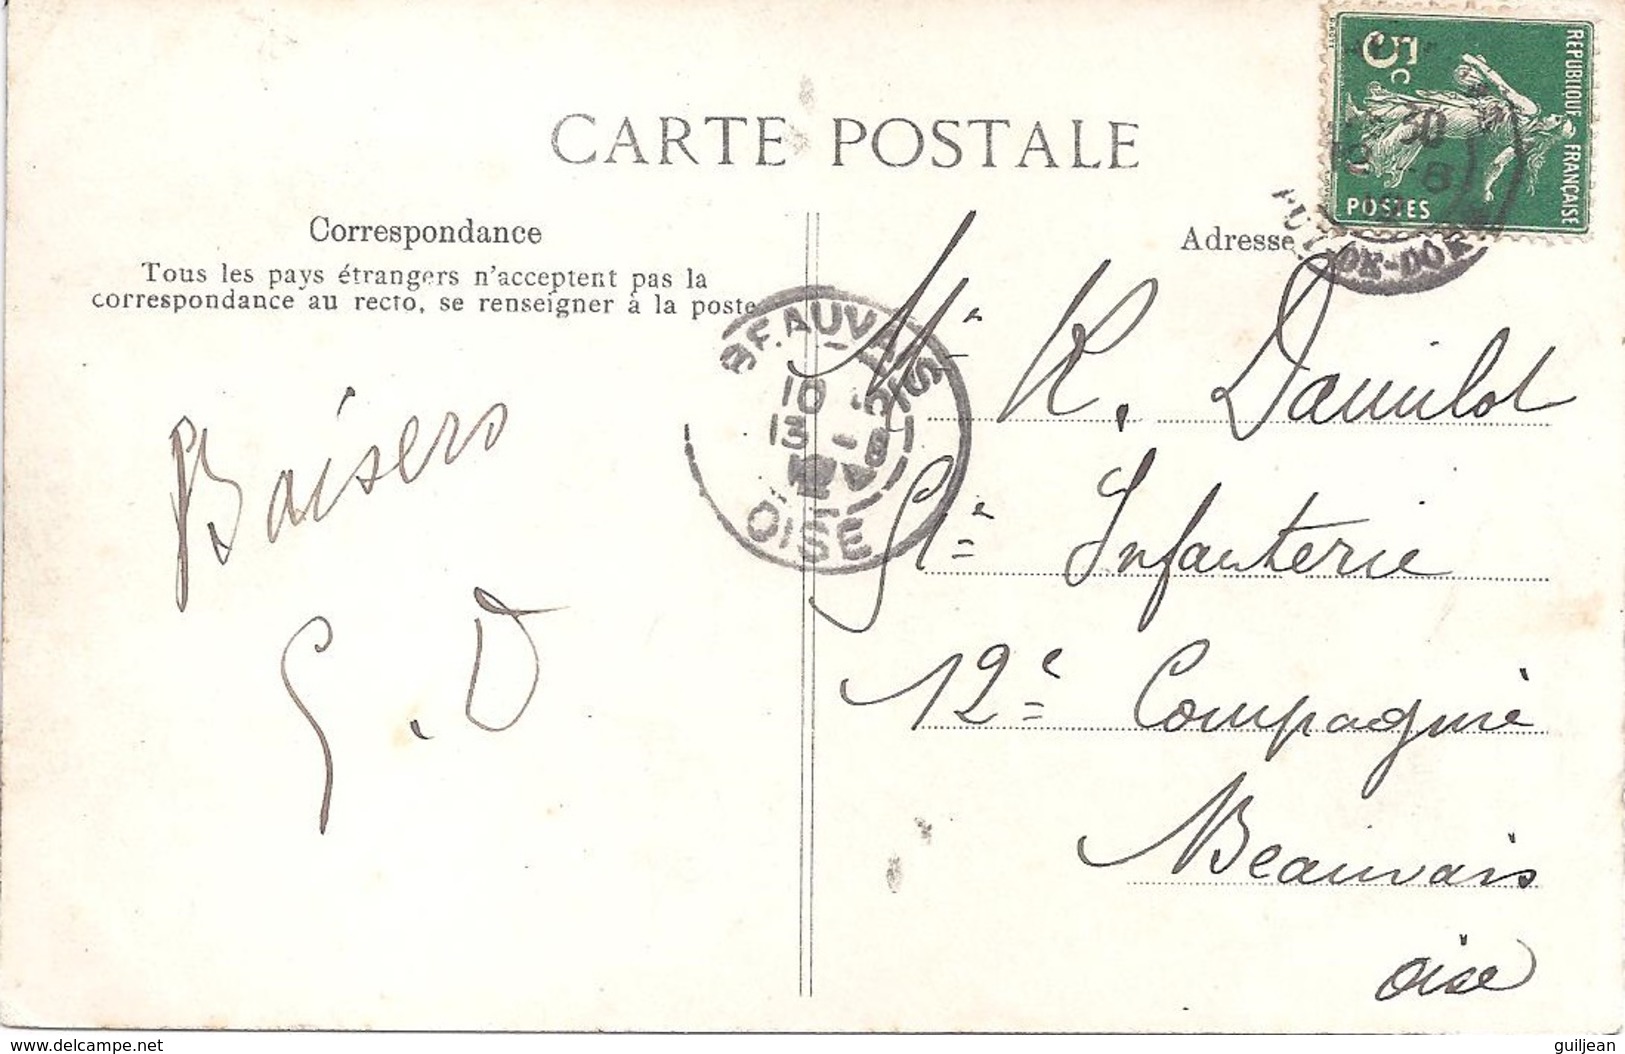 CARTE POSTALE
Correspondance
Tous les pays étrangers n'acceptent pas la
correspondance au recto, se renseigner à la poste
Baisers
G. D
Adresse
Mr R. Damilot
51e Infanterie
12e Compagnie
Beauvais
Oise
BEAUVAIS
10
13 - 8
12
OISE
RÉPUBLIQUE FRANÇAISE
5c
POSTES
30
PUY-DE-DÔME
www.delcampe.net
guiljean